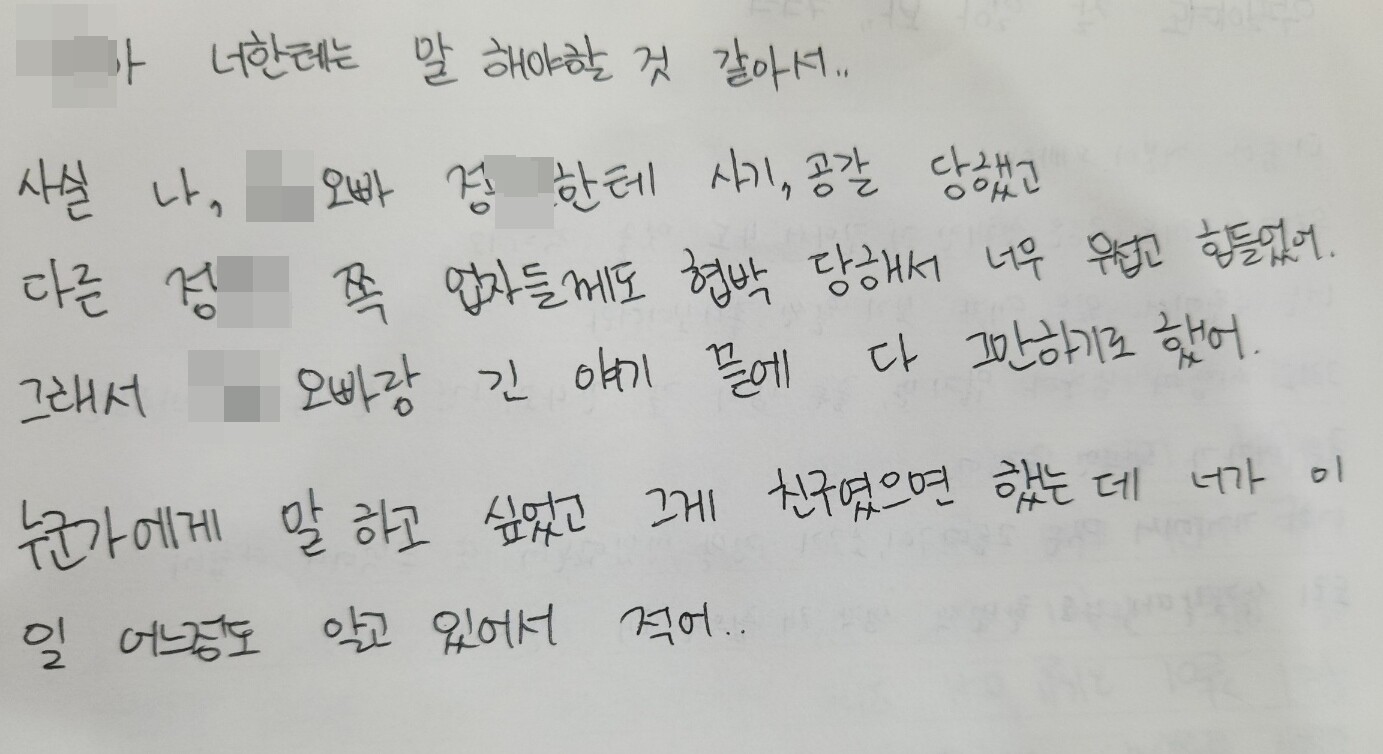 아 너한테는 말 해야할 것 같아서..
사실 나, 오빠 정 한테 사기, 공갈 당했고
다른 정 쪽 업자들께도 협박 당해서 너무 무섭고 힘들었어.
그래서 오빠랑 긴 얘기 끝에 다 그만하기로 했어.
누군가에게 말 하고 싶었고 그게 친구였으면 했는 데 너가 이
일 어느정도 알고 있어서 적어..